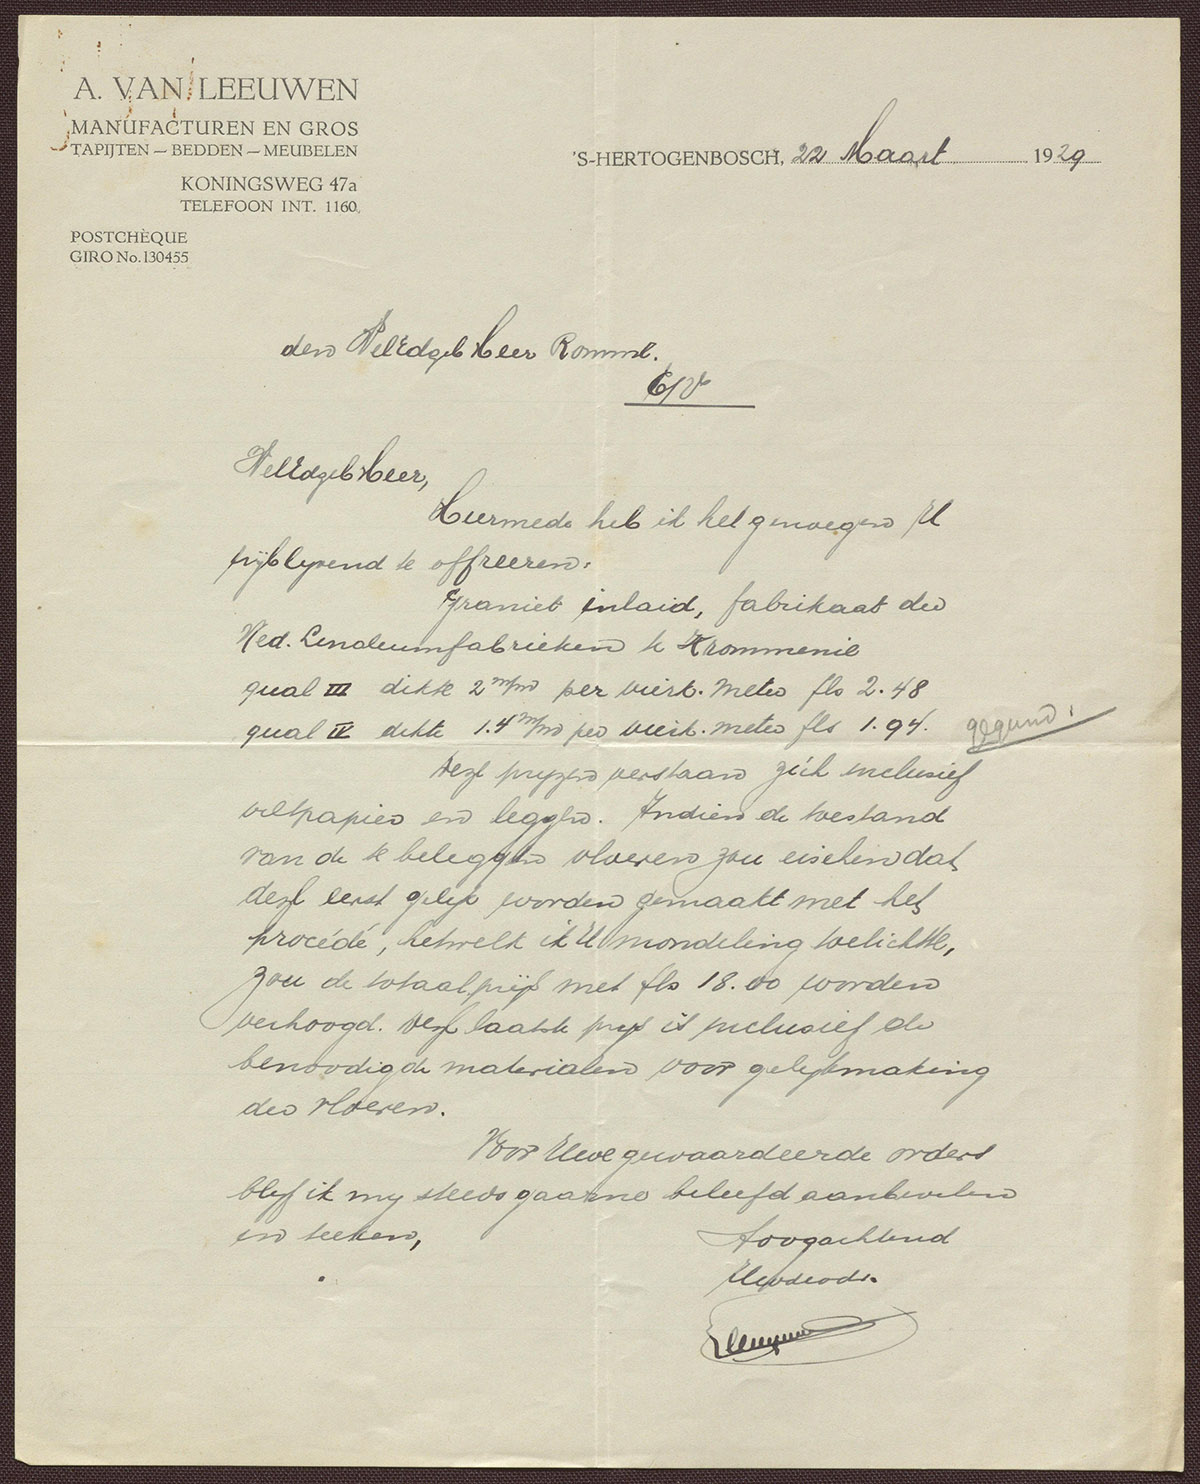 A. VAN LEEUWEN
MANUFACTUREN EN GROS
TAPIJTEN — BEDDEN — MEUBELEN
KONINGSWEG 47a
TELEFOON INT. 1160.
POSTCHÈQUE
GIRO No. 130455
'S-HERTOGENBOSCH, 22 Maart 1929
den WelEdgeb Heer Romme.
E/V
WelEdgeb Heer,
Hiermede heb ik het genoegen U
vrijblijvend te offreeren:
Graniet inlaid, fabrikaat der
Ned. Linoleumfabrieken te Krommenie
qual III dikte 2 m/m per vierk. meter fls 2.48
qual IV dikte 1.4 m/m per vierk. meter fls 1.94. gegund!
Deze prijzen verstaan zich inclusief
viltpapier en leggen. Indien de toestand
van de te beleggen vloeren zou eischen dat
deze eerst gelijk worden gemaakt met het
procédé, hetwelk ik U mondeling toelichtte,
zou de totaalprijs met fls 18.00 worden
verhoogd. Deze laatste prijs is inclusief de
benoodigde materialen voor gelijkmaking
der vloeren.
Voor Uwe gewaardeerde orders
blijf ik mij steeds gaarne beleefd aanbevelen
en teeken,
Hoogachtend
Uwdwdr.